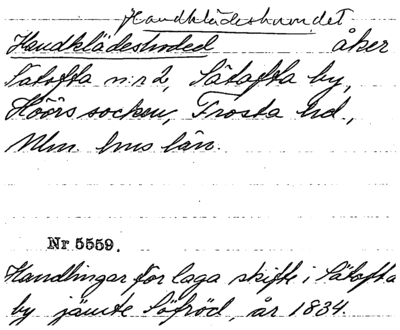 Handklädeshundet
Handklädeshded åker
Sätofta n:r 2, Sätofta by,
Höörs socken, Frosta hd.,
Mlm. hus län.
Nr 5559.
Handlingar för laga skifte i Sätofta
by jämte Söfröd, år 1834.